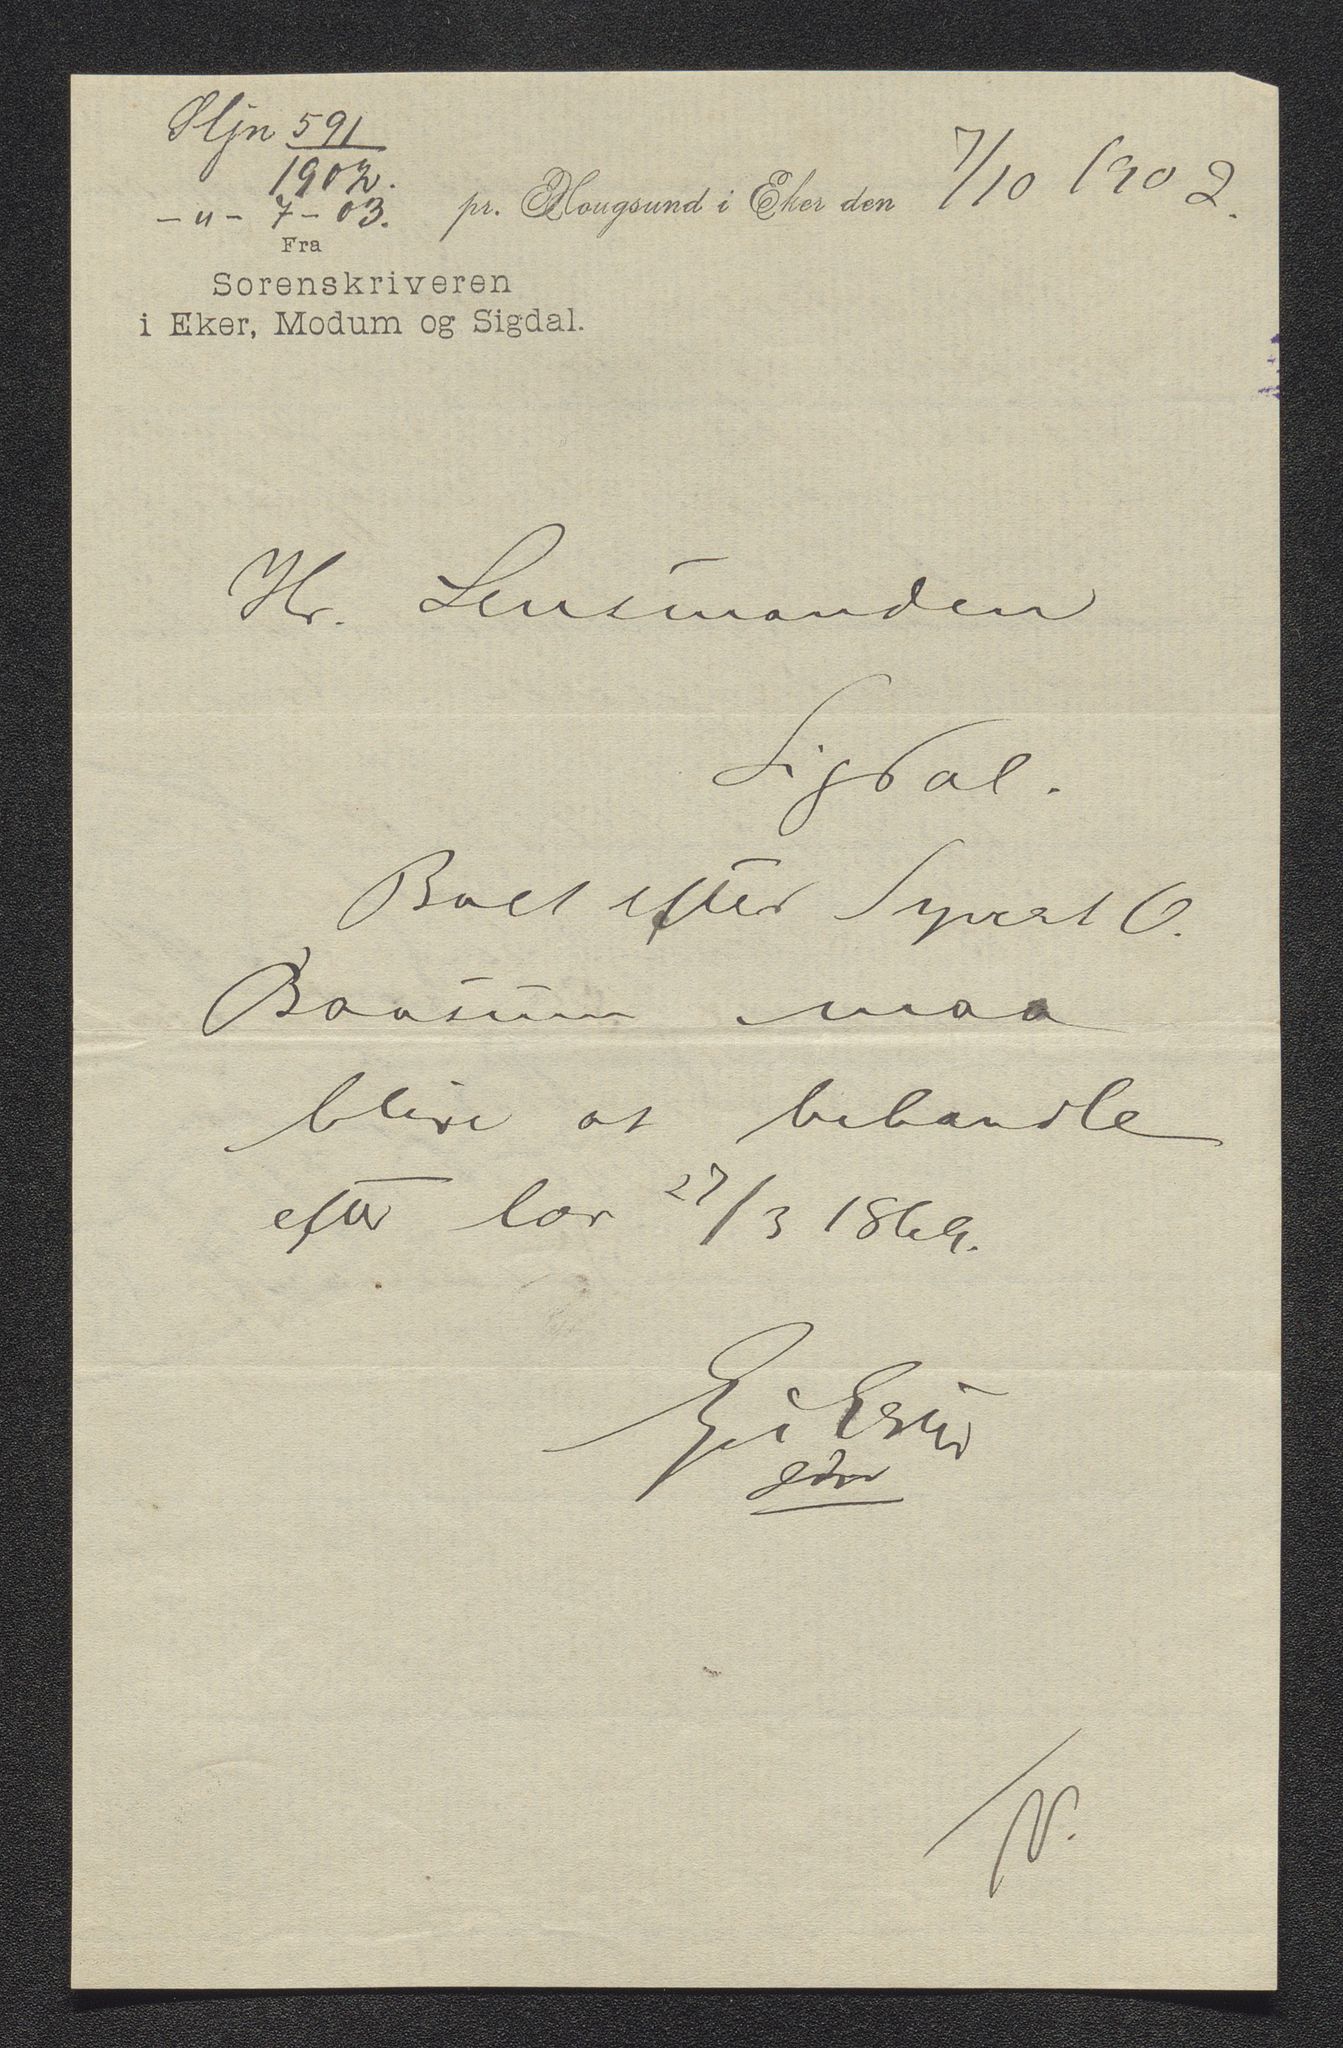 Sljn 591
1902.
-"- 7-03.
pr. Hougsund i Eker den 7/10 1902.
Fra
Sorenskriveren
i Eker, Modum og Sigdal.
Hr. Lensmanden
Sigdal.
Boet efter Syvert O.
Baasum maa
blive at behandle
efter lov 27/3 1869.
N.